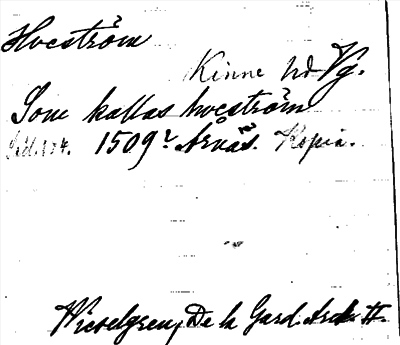 Hvoström
Kinne hd Vg.
Som kallas hvoström
1509 Arnäs. Kopia.
Wieselgren, De la Gard. Ark. II.